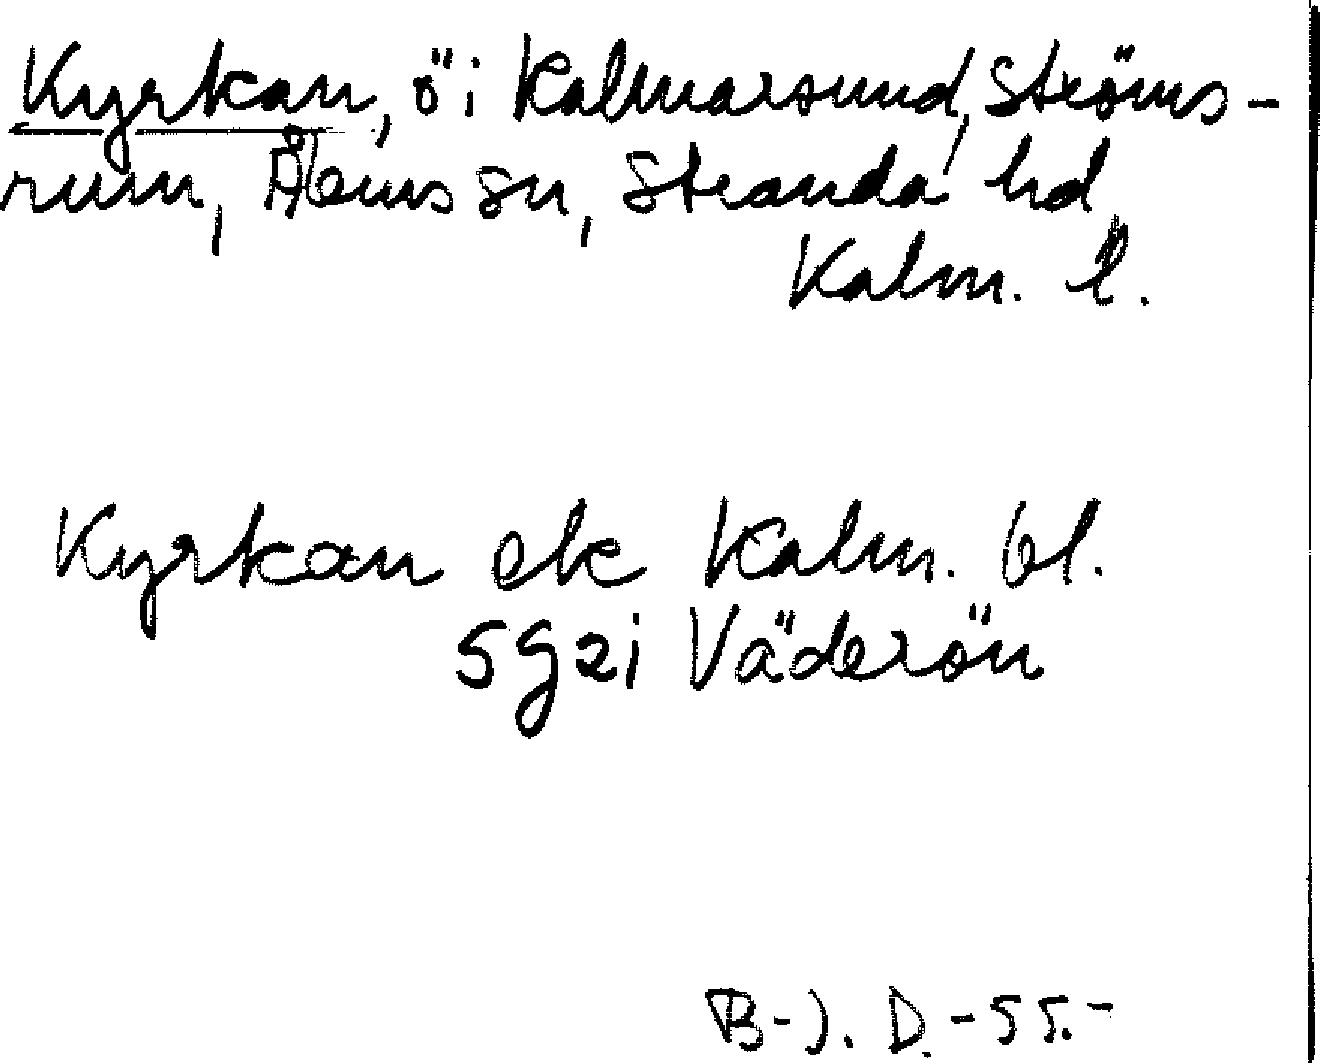 Kyrkan, ö i Kalmarsund, Ströms-
rum, Ålems sn, Stranda hd,
Kalm. l.
Kyrkan ek Kalm. bl.
5g2i Väderön
B-J. D. -55.-